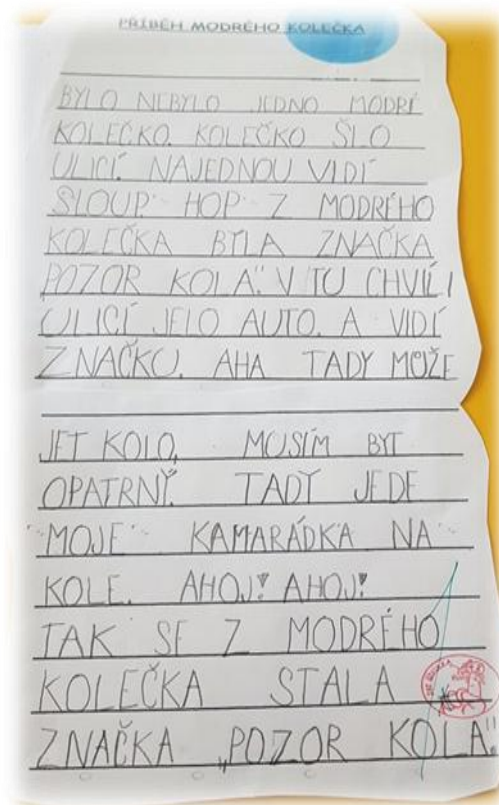 PŘÍBĚH MODRÉHO KOLEČKA
BYLO NEBYLO JEDNO MODRÉ
KOLEČKO. KOLEČKO ŠLO
ULICÍ. NAJEDNOU VIDÍ
SLOUP. HOP Z MODRÉHO
KOLEČKA BYLA ZNAČKA
POZOR KOLA". V TU CHVÍLI
ULICÍ JELO AUTO. A VIDÍ
ZNAČKU. AHA TADY MŮŽE
JET KOLO, MUSÍM BYT
OPATRNÝ. TADY JEDE
MOJE KAMARÁDKA NA
KOLE. AHOJ! AHOJ!
TAK SE Z MODRÉHO
KOLEČKA STALA
ZNAČKA „POZOR KOLA".